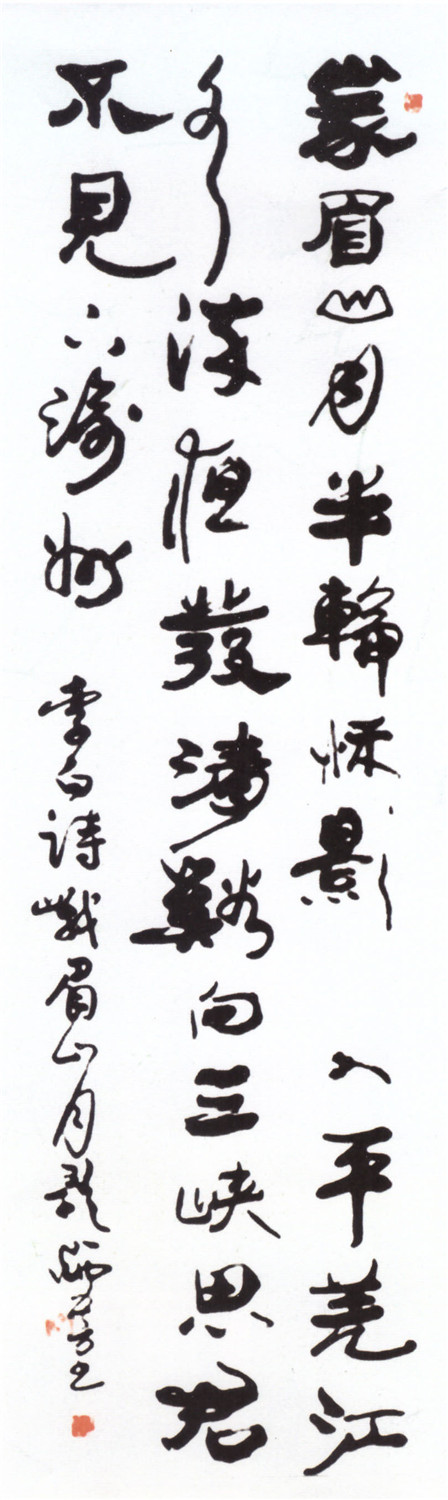 峩眉山月半輪秋影入平羌江
水流夜發清谿向三峽思君
不見下渝州 李白詩峨眉山月歌